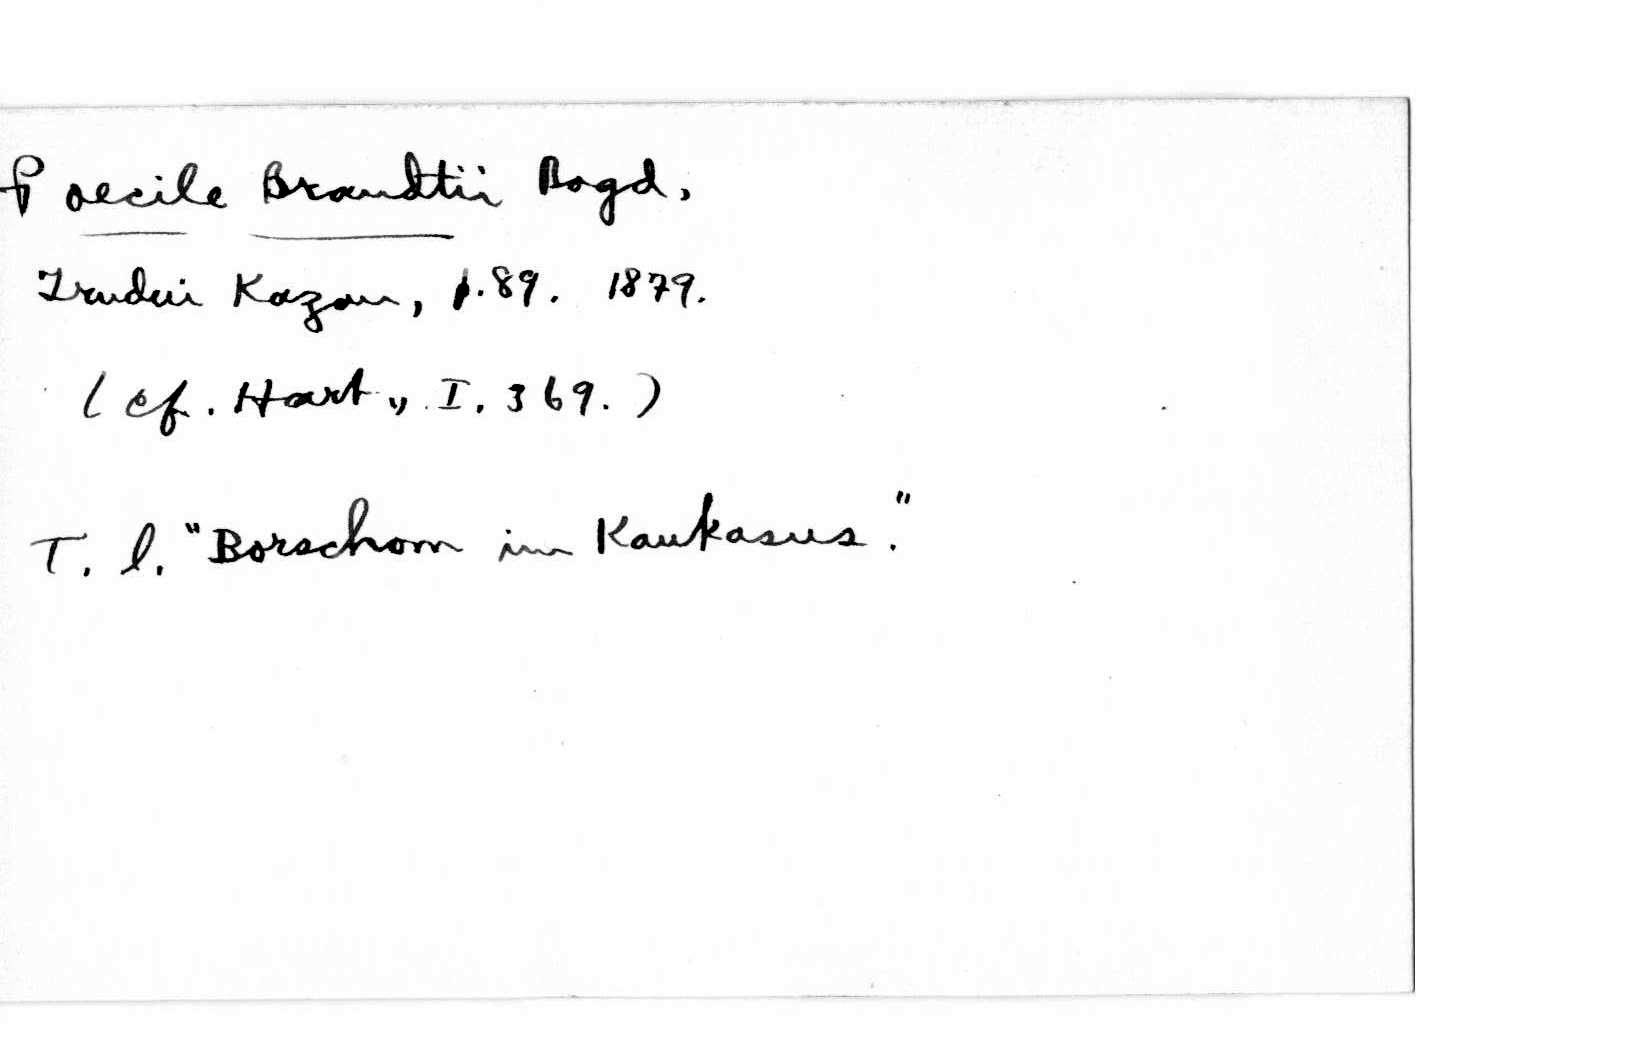 Poecile Brandtii Bogd.
Trudui Kazan, p.89. 1879.
(cf. Hart., I. 369.)
T. l. "Borschom im Kaukasus."